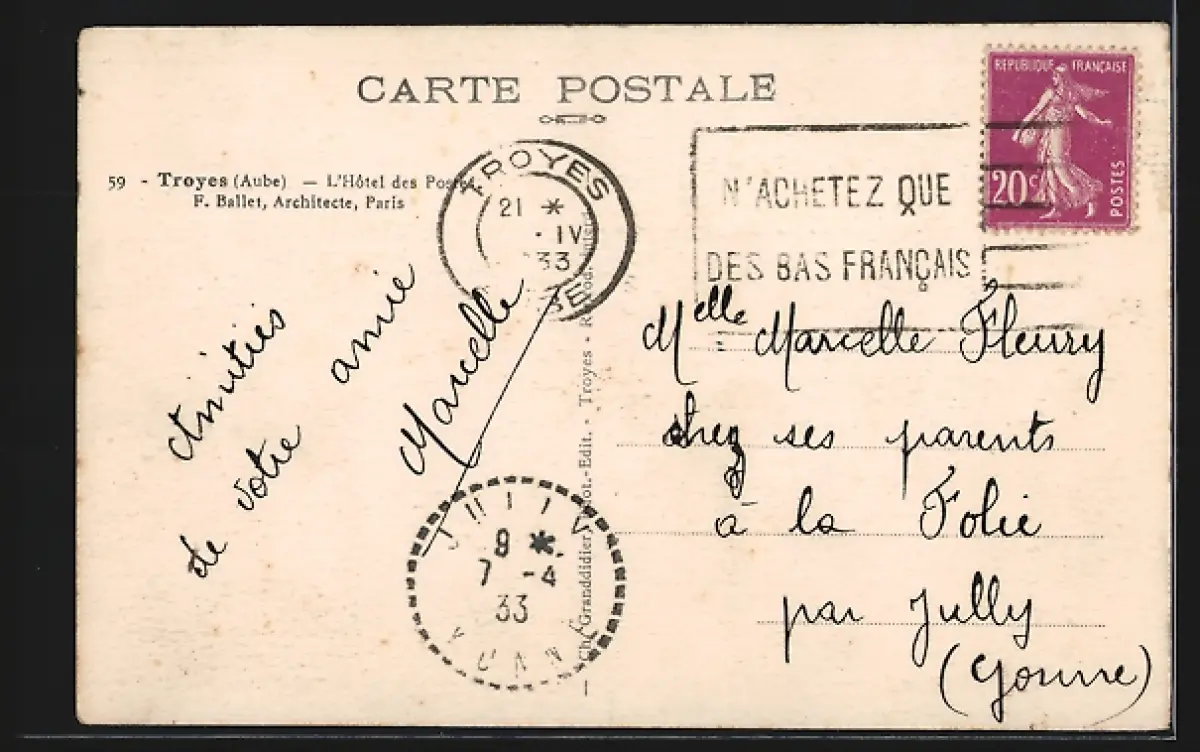 CARTE POSTALE
59 - Troyes (Aube) — L'Hôtel des Postes
F. Ballet, Architecte, Paris
TROYES
21 *
IV
33
AUBE
N'ACHETEZ QUE
DES BAS FRANÇAIS
REPUBLIQUE FRANÇAISE
20c
POSTES
Amitiés
de votre amie
Marcelle
Melle Marcelle Fleury
chez ses parents
à la Folie
par Jully
(Yonne)
JULLY
9 *
7 -4
33
YONNE
Granddidier, Phot.-Edit. - Troyes -